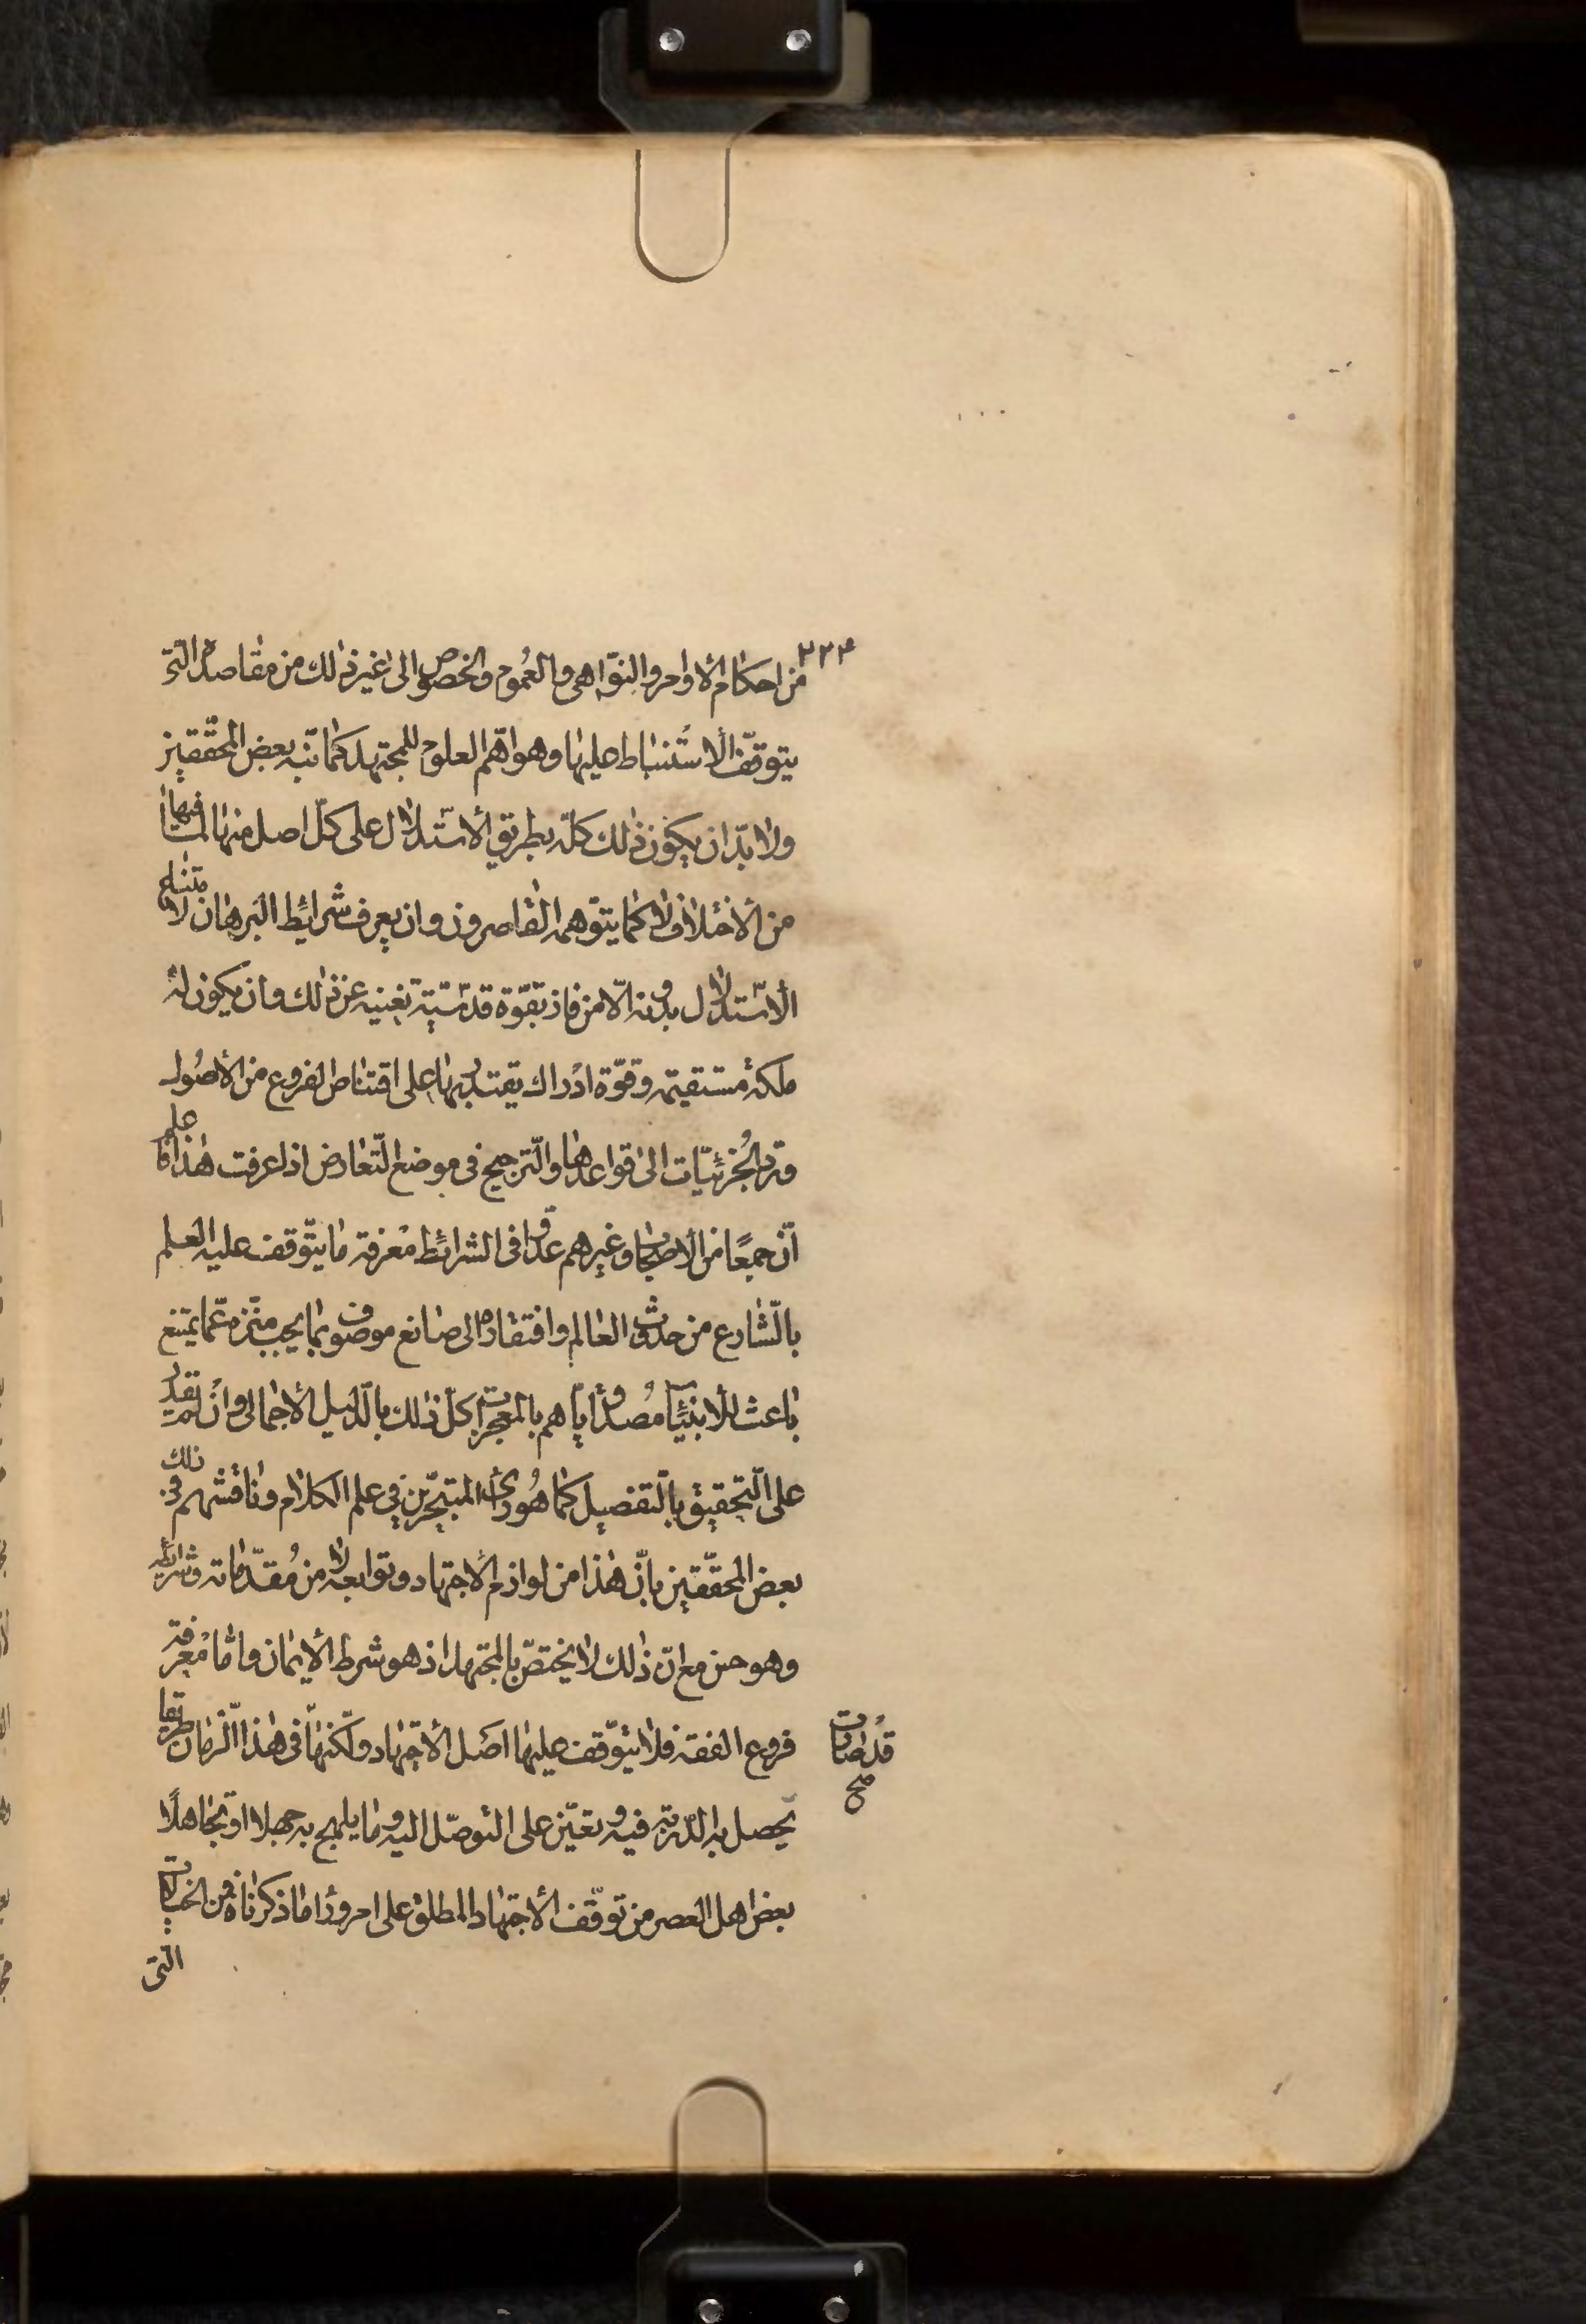 ٢٢٣
من احكام الاوامر والنواهى والعموم والخصوص الى غير ذلك من مقاصده التى
يتوقف الاستنباط عليها وهو اهم العلوم للمجتهد كما نبه بعض المحققين
ولا بد ان يكون ذلك كله بطريق الاستدلال على كل اصل منها لما فيها
من الاختلاف لا كما يتوهمه القاصرون وان يعرف شرائط البرهان لامتناع
الاستدلال بدونه الا من فاز بقوة قدسية تغنيه عن ذلك وان يكون له
ملكة مستقيمه وقوة ادراك يقتدر بها على اقتناص الفروع من الاصول
ورد الجزئيات الى قواعدها والترجيح فى موضع التعارض اذا عرفت هذا فاعلم
ان جمعًا من الاصحاب وغيرهم عدوا فى الشرائط معرفة ما يتوقف عليه العلم
بالشارع من حدوث العالم وافتقاره الى صانع موصوف بما يجب منزه عما يمتنع
باعث للانبياء مصدق اياهم بالمعجزات كل ذلك بالدليل الاجمالى وان لم يقدر
على التحقيق بالتفصيل كما هو دأب المتبحرين فى علم الكلام وناقشهم فى ذلك
بعض المحققين بان هذا من لوازم الاجتهاد وتوابعه لا من مقدماته وشرائطه
وهو حسن مع ان ذلك لا يختص بالمجتهد اذ هو شرط الايمان واما معرفة
فروع الفقه فلا يتوقف عليها اصل الاجتهاد ولكنها فى هذا الزمان طريقا
قد صارت
صح
يحصل به الدربة فيه وتعين على التوصل اليه وما يلهج به جهلا او تجاهلًا
بعض اهل العصر من توقف الاجتهاد المطلق على امر وراء ما ذكرناه فمن الخيالات
التى